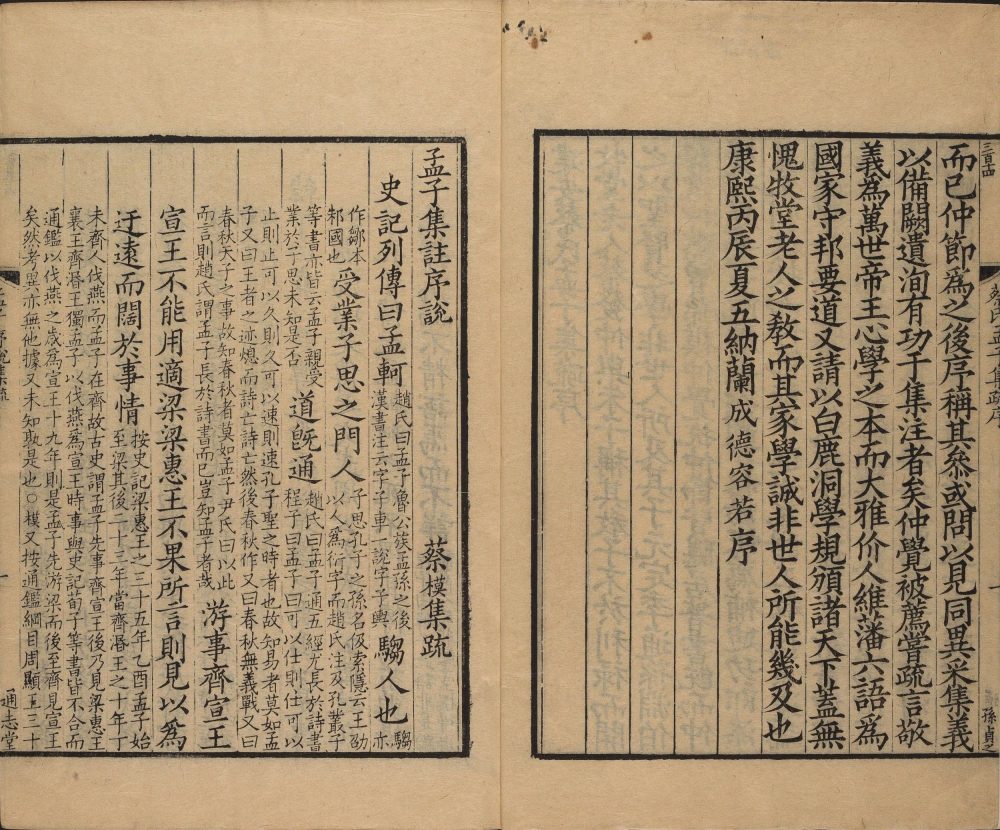 三百十四
而已仲節爲之後序稱其叅或問以見同異采集義
以備闕遺洵有功于集注者矣仲覺被薦嘗疏言敬
義爲萬世帝王心學之本而大雅价人維藩六語爲
國家守邦要道又請以白鹿洞學規頒諸天下蓋無
愧牧堂老人之教而其家學誠非世人所能幾及也
康熙丙辰夏五納蘭成德容若序
孟子集註序說
蔡模集疏
史記列傳曰孟軻趙氏曰孟子魯公族孟孫之後漢書注云字子車一說字子輿騶人也騶亦
作鄒本邾國也受業子思之門人子思孔子之孫名伋索隱云王劭以人爲衍字而趙氏注及孔叢子
等書亦皆云孟子親受業於子思未知是否道旣通趙氏曰孟子通五經尤長於詩書程子曰孟子曰可以仕則仕可以
止則止可以久則久可以速則速孔子聖之時者也故知易者莫如孟
子又曰王者之迹熄而詩亡詩亡然後春秋作又曰春秋無義戰又曰
春秋天子之事故知春秋者莫如孟子尹氏曰以此
而言則趙氏謂孟子長於詩書而已豈知孟子者哉游事齊宣王
宣王不能用適梁梁惠王不果所言則見以爲
迂遠而闊於事情按史記梁惠王之三十五年乙酉孟子始至梁其後二十三年當齊湣王之十年丁
未齊人伐燕而孟子在齊故古史謂孟子先事齊宣王後乃見梁惠王
襄王齊湣王獨孟子以伐燕爲宣王時事與史記荀子等書皆不合而
通鑑以伐燕之歲爲宣王十九年則是孟子先游梁而後至齊見宣王
矣然考異亦無他據又未知孰是也○模又按通鑑綱目周顯王三十
通志堂